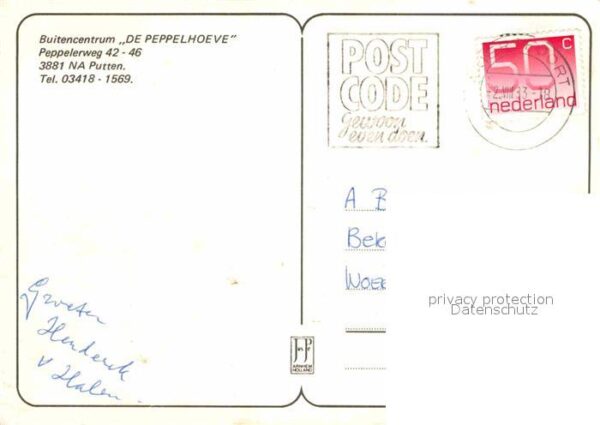 Buitencentrum „DE PEPPELHOEVE"
Peppelerweg 42 - 46
3881 NA Putten.
Tel. 03418 - 1569.
POST
CODE
gewoon
even doen.
50 C
nederland
A B
Bek
Woe
privacy protection
Datenschutz
Groeten
Henderik
v Halen.
ARNHEM
HOLLAND